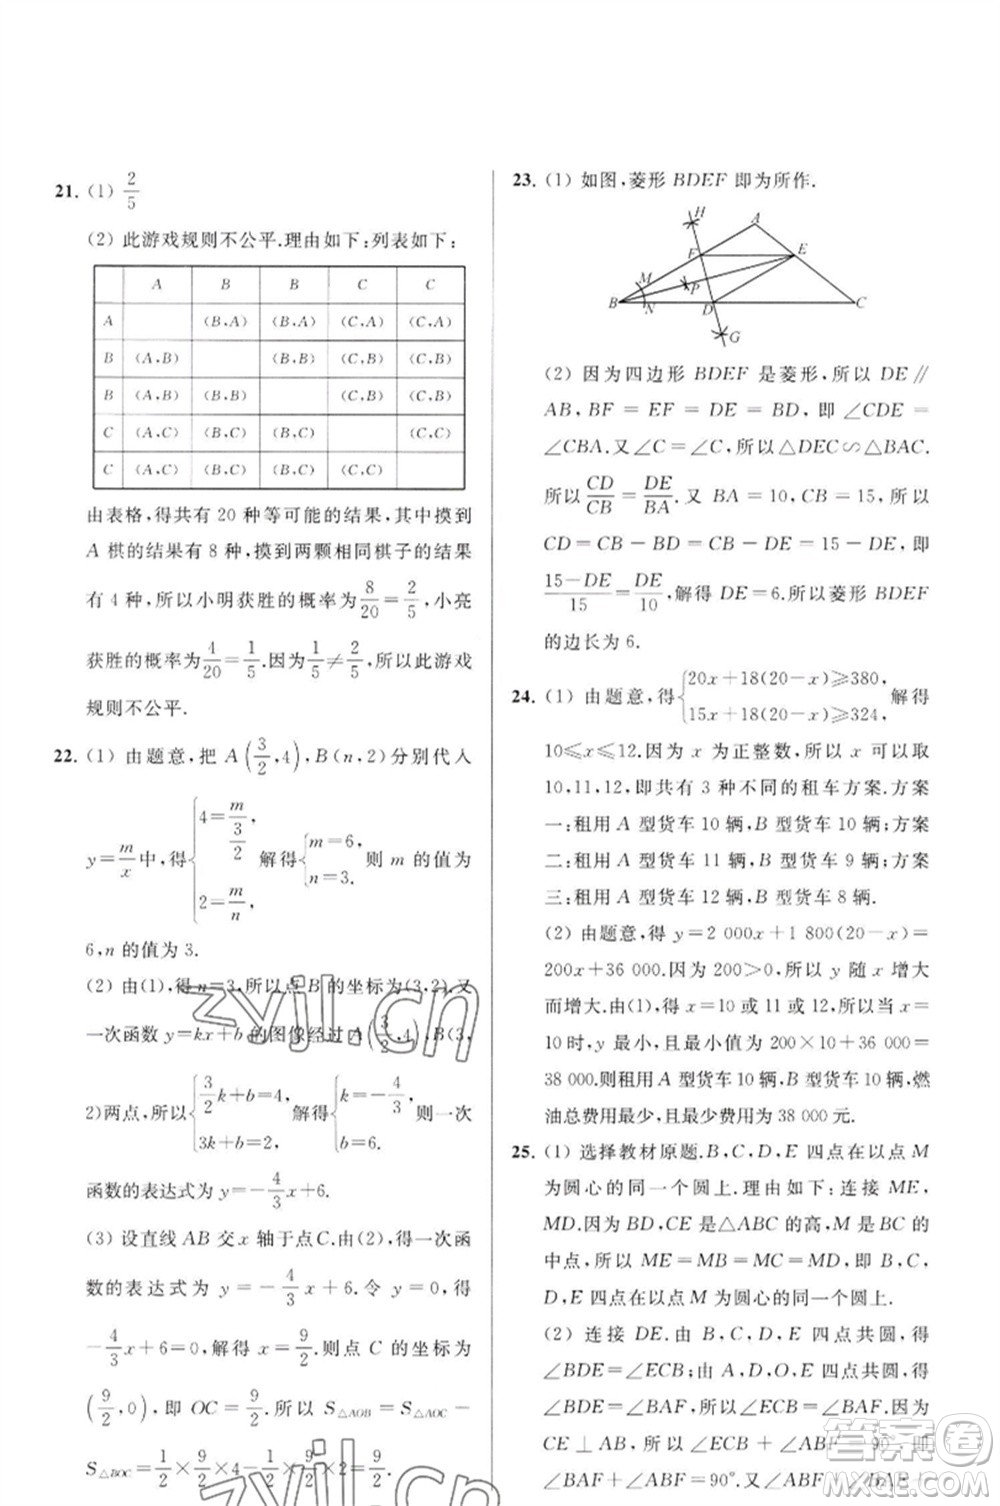 21. (1) 2/5
(2) 此游戏规则不公平.理由如下:列表如下:
A B B C C
A (B,A) (B,A) (C,A) (C,A)
B (A,B) (B,B) (C,B) (C,B)
B (A,B) (B,B) (C,B) (C,B)
C (A,C) (B,C) (B,C) (C,C)
C (A,C) (B,C) (B,C) (C,C)
由表格,得共有 20 种等可能的结果,其中摸到
A 棋的结果有 8 种,摸到两颗相同棋子的结果
有 4 种,所以小明获胜的概率为 8/20=2/5,小亮
获胜的概率为 4/20=1/5.因为 1/5≠2/5,所以此游戏
规则不公平.
22. (1) 由题意,把 A(3/2,4),B(n,2)分别代人
y=m/x中,得{4=m/(3/2), 2=m/n, 解得{m=6, n=3. 则 m 的值为
6,n 的值为 3.
(2) 由(1),得 n=3,所以点 B 的坐标为(3,2).又
一次函数 y=kx+b 的图像经过 A(3/2,4),B(3,
2)两点,所以{3/2k+b=4, 3k+b=2, 解得{k=-4/3, b=6. 则一次
函数的表达式为 y=-4/3x+6.
(3) 设直线 AB 交 x 轴于点 C.由(2),得一次函
数的表达式为 y=-4/3x+6.令 y=0,得
-4/3x+6=0,解得 x=9/2.则点 C 的坐标为
(9/2,0),即 OC=9/2.所以 S△AOB=S△AOC-
S△BOC=1/2×9/2×4-1/2×9/2×2=9/2.
23. (1) 如图,菱形 BDEF 即为所作.
H
A
F
E
M
P
B
N
D
C
G
(2) 因为四边形 BDEF 是菱形,所以 DE∥
AB,BF=EF=DE=BD,即∠CDE=
∠CBA.又∠C=∠C,所以△DEC∽△BAC.
所以CD/CB=DE/BA.又 BA=10,CB=15,所以
CD=CB-BD=CB-DE=15-DE,即
15-DE/15=DE/10,解得 DE=6.所以菱形 BDEF
的边长为 6.
24. (1) 由题意,得{20x+18(20-x)≥380, 15x+18(20-x)≥324, 解得
10≤x≤12.因为 x 为正整数,所以 x 可以取
10,11,12,即共有 3 种不同的租车方案.方案
一:租用 A 型货车 10 辆,B 型货车 10 辆;方案
二:租用 A 型货车 11 辆,B 型货车 9 辆;方案
三:租用 A 型货车 12 辆,B 型货车 8 辆.
(2) 由题意,得 y=2 000x+1 800(20-x)=
200x+36 000.因为 200>0,所以 y 随 x 增大
而增大.由(1),得 x=10 或 11 或 12,所以当 x=
10 时,y 最小,且最小值为 200×10+36 000=
38 000.则租用 A 型货车 10 辆,B 型货车 10 辆,燃
油总费用最少,且最少费用为 38 000 元.
25. (1) 选择教材原题.B,C,D,E 四点在以点 M
为圆心的同一个圆上.理由如下:连接 ME,
MD.因为 BD,CE 是△ABC 的高,M 是 BC 的
中点,所以 ME=MB=MC=MD,即 B,C,
D,E 四点在以点 M 为圆心的同一个圆上.
(2) 连接 DE.由 B,C,D,E 四点共圆,得
∠BDE=∠ECB;由 A,D,O,E 四点共圆,得
∠BDE=∠BAF,所以∠ECB=∠BAF.因
∠BAF+∠ABF=90°.又∠ABF
zyjl.cn
zyjl.cn
答案圈
MXQE.COM